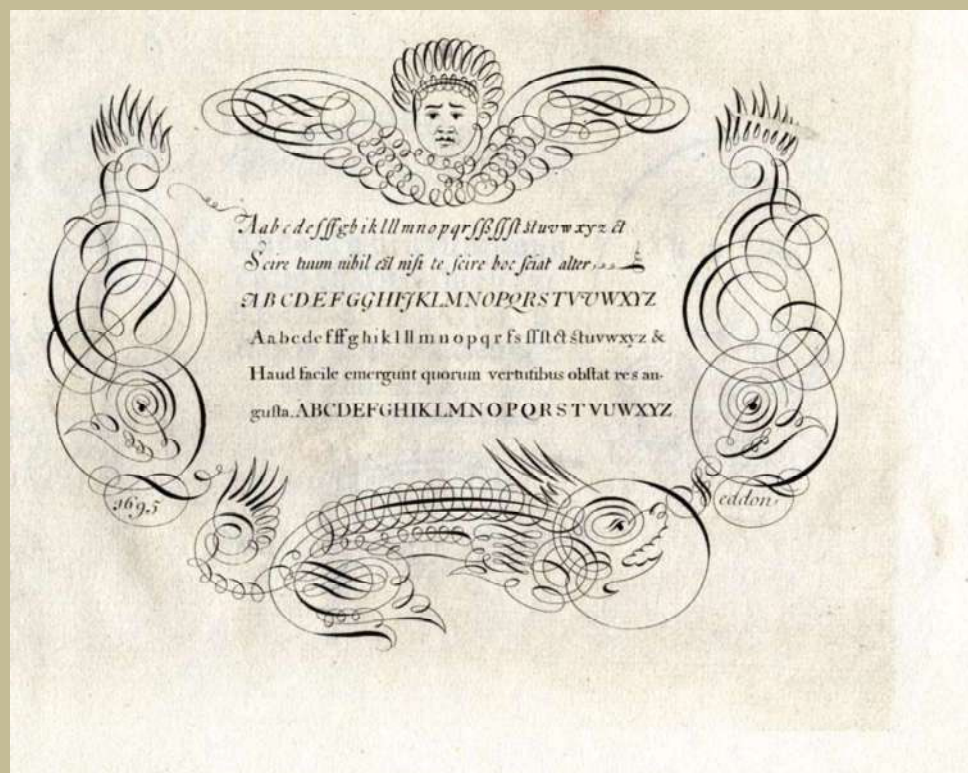 Aabcdeſffgbiklllmnopqrſſßſſſtſtuvwxyz ct
Scire tuum nihil eſt niſi te ſcire hoc ſciat alter
ABCDEFGGHIJKLMNOPQRSTVUWXYZ
Aabcdefffghiklllmnopqrſsſſſtctſtuvwxyz &
Haud facile emergunt quorum vertutibus obſtat res an-
guſta. ABCDEFGHIKLMNOPQRSTVUWXYZ
1695
Seddon